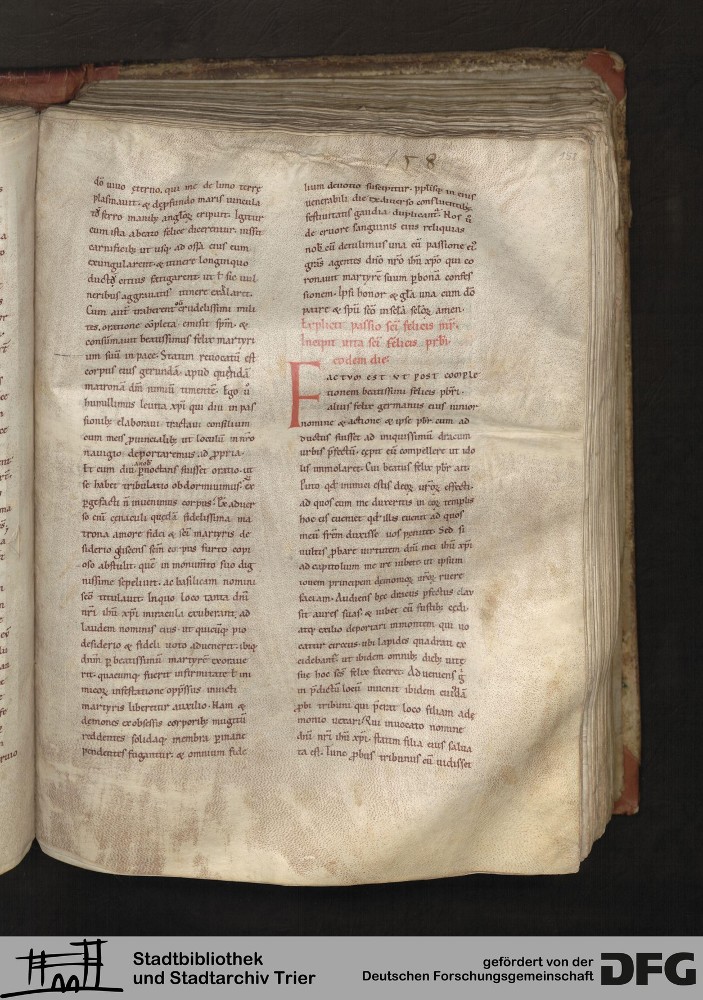 158
151
do uiuo eterno, qui me de limo terre
plasmauit. & de pfundo maris uincula
ferro manib; angloꝝ eripuit. Igitur
cum ista a beato felice dicerentur. iussit
carnificib; ut usq; ad ossa eius eum
exungularent. & itinere longinquo
fatigarent. ut sic uul
neribus aggrauatus itinere exalaret.
Cum aut traherent crudelissimi mili
tes, oratione cōpleta emisit spm̄. &
consūmauit beatissimus felix martyri
um suū in pace. Statim reuocatū est
corpus eius gerunda. apud quendā
matronā dm̄ nimiū timentē. Ego ū
humillimus leuita xp̄i qui diu in pas
sionib; elaboraui tractaui consilium
cum meis puincialib; ut loculū in nr̄o
nauigio deportaremus ad ppria.
Et cum diu pnoctans fuisset oratio. ut
se habet tribulatio obdormiuimus.
pgefacti n̄ inuenimus corpus. Ex aduer
so enī cenaculi quedā fidelissima ma
trona amore fidei & sc̄i martyris de
siderio gliscens sc̄m corpus furto copi
oso abstulit. que in monumto suo dig
nissime sepeliuit. ac basilicam nomini
sc̄o titulauit. Inquo loco tanta dn̄i
nr̄i ihū xp̄i miracula exuberant. ad
laudem nominis eius. ut quicūq; pio
desiderio & fideli uoto aduenerit. ibiq;
dn̄m p beatissimū martyrē exoraue
rit. quacumq; fuerit infirmitate ł ini
micoꝝ infestatione oppssus inuicti
martyris liberetur auxilio. Nam &
demones ex obsessis corporib; mugitū
reddentes solidaq; membra pmane
pendentes fugantur. & omnium fide
lium deuotio suscipitur. pplisq; in eius
uenerabili die ex diuerso confluentib;
festiuitatis gaudia duplicant. Hos ū
de cruore sanguinis eius reliquias
nob cū detulimus una cū passione ei'
grās agentes dn̄o nr̄o ihū xp̄o qui co
ronauit martyrē suum p bonā confes
sionem. Ipsi honor & gl̄a una cum dō
patre & spū sc̄o in sc̄la sc̄loꝝ amen.
Explicit passio sc̄i felicis mr̄.
Incipit uita sc̄i felicis prb̄i.
eodem die.
FACTVM EST VT POST COMPLE
tionem beatissimi felicis pbr̄i.
alius felix germanus eius iunior
nomine & actione & ipse pbr̄ cum ad
ductus fuisset ad iniquissimū dracum
urbis pfectū. cepit eū compellere ut ido
lis immolaret. Cui beatus felix pbr̄ ait.
Puto. qd inimici estis deoꝝ uroꝝ effecti.
ad quos cum me duxeritis in eoꝝ templis
hoc eis eueniet qd illis euenit ad quos
meū frēm duxisse uos penitet. Sed si
uultis pbare uirtutem dn̄i mei ihū xp̄i
ad capitolium me ire iubete. ut ipsum
iouem principem demonioꝝ uroꝝ ruere
faciam. Audiens hec dracus pfectus clau
sit aures suas. & iubet eū fustib; cedi.
atq; exilio deportari in montem qui uo
catur circeus. ubi lapides quadrati ex
cidebant. ut ibidem omnib; dieb; uite
sue hoc sc̄s felix faceret. Adueniens g
in pdictū locū inuenit ibidem cuidā
pbi tribuni qui pērat loco filiam a de
monio uexari. Qui inuocato nomine
dn̄i nr̄i ihū xp̄i. statim filia eius salua
ta est. Tunc pbus tribunus cū uidisset
Stadtbibliothek
und Stadtarchiv Trier
gefördert von der
Deutschen Forschungsgemeinschaft
DFG